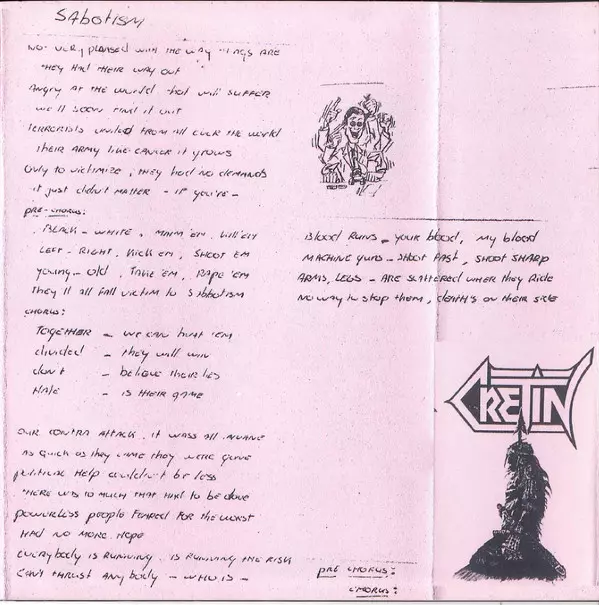 SABOTISM
NOT VERY PLEASED WITH THE WAY THINGS ARE
THEY HAD THEIR WAY OUT
ANGRY AT THE WORLD THAT WILL SUFFER
WE'LL SOON FIND IT OUT
TERRORISTS UNITED FROM All OVER THE WORLD
THEIR ARMY LIKE CANCER IT GROWS
Only TO VICTIMIZE, THEY HAD NO DEMANDS
IT JUST DIDN'T MATTER - IF YOU'RE -
PRE-CHORUS:
BLACK - WHITE, MAIM 'EM, KILL 'EM
LEFT - RIGHT, KICK EM, SHOOT EM
YOUNG - OLD, TAKE 'EM, RAPE 'EM
THEY'll All FALL VICTIM TO SABOTISM
CHORUS:
TOGETHER - WE CAN HUNT 'EM
divided - THEY WILL WIN
don't - BELIEVE THEIR LIES
HATE - IS THEIR GAME
OUR CONTRA ATTACK, IT WASS All
AS QUICK AS THEY CAME THEY WERE GONE
POLITICAL HELP COULDN'T BE LESS
THERE WAS TO MUCH THAT HAD TO BE DONE
POWERLESS PEOPLE FEARED FOR THE WORST
HAD NO MORE HOPE
EVERYBODY IS RUNNING, IS RUNNING THE RISK
CAN'T THRUST ANYBODY - WHO IS -
BLOOD RUNS - YOUR BLOOD, MY BLOOD
MACHINE GUNS - SHOOT FAST, SHOOT SHARP
ARMS, LEGS - ARE SCATTERED WHER THEY RIDE
NO WAY TO STOP THEM, DEATH'S ON THEIR SIDE
CRETIN
PRE CHORUS:
CHORUS: